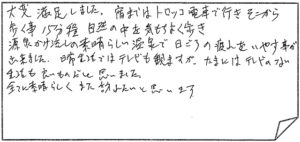 大変満足しました。宿まではトロッコ電車で行きそこから
歩く事15分程 自然の中を気もちよく歩き
源泉かけ流しの素晴らしい温泉で日ごろの疲れをいやす事が
出来ました。日常生活ではテレビも観ますが、たまにはテレビのない
生活も良いものだと思いました。
全てに素晴らしく また訪ねたいと思います